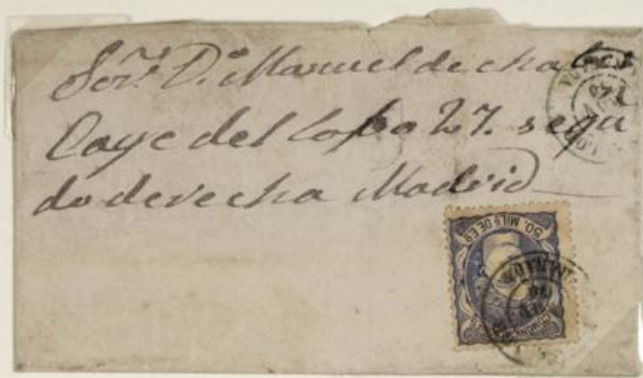 Sor. Dn. Manuel de chabes
Caye del lobo 27. segu
do derecha Madrid
50. MILS DE E.
COMUN